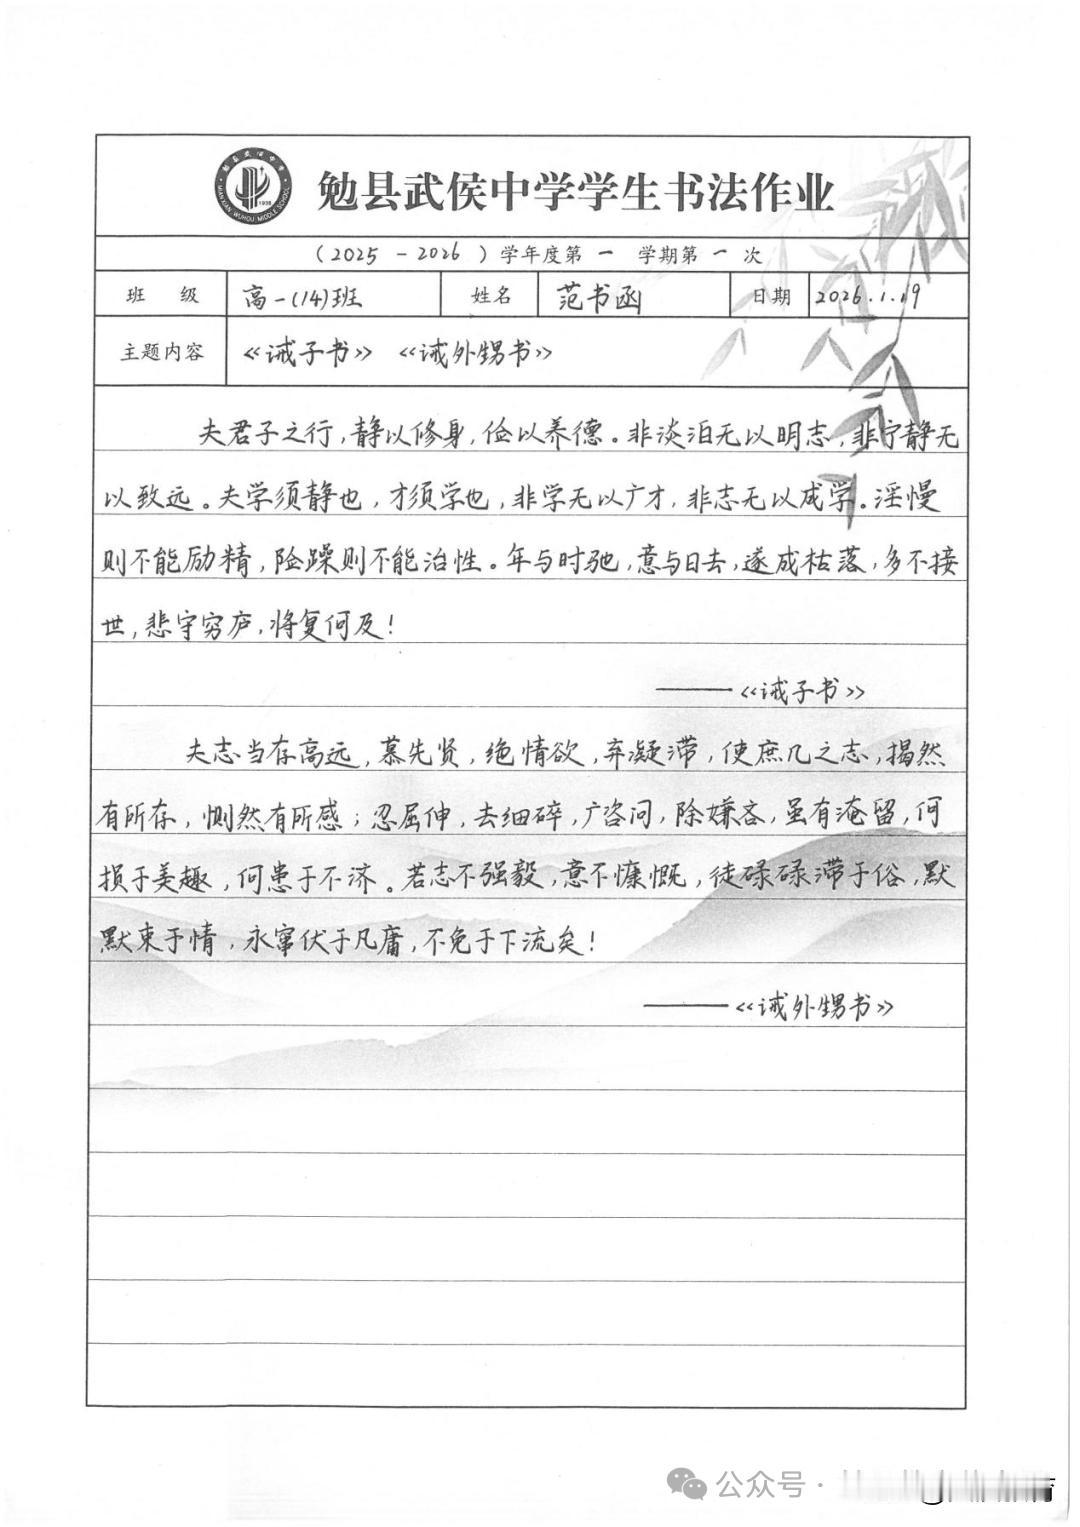 勉县武侯中学
MIANXIAN WUHOU MIDDLE SCHOOL
1938
勉县武侯中学学生书法作业
(2025-2026)学年度第一学期第一次
班级 高一(14)班 姓名 范书函 日期 2026.1.19
主题内容 《诫子书》 《诫外甥书》
夫君子之行,静以修身,俭以养德。非淡泊无以明志,非宁静无
以致远。夫学须静也,才须学也,非学无以广才,非志无以成学。淫慢
则不能励精,险躁则不能治性。年与时驰,意与日去,遂成枯落,多不接
世,悲守穷庐,将复何及!
——《诫子书》
夫志当存高远,慕先贤,绝情欲,弃凝滞,使庶几之志,揭然
有所存,恻然有所感;忍屈伸,去细碎,广咨问,除嫌吝,虽有淹留,何
损于美趣,何患于不济。若志不强毅,意不慷慨,徒碌碌滞于俗,默
默束于情,永窜伏于凡庸,不免于下流矣!
——《诫外甥书》
公众号·